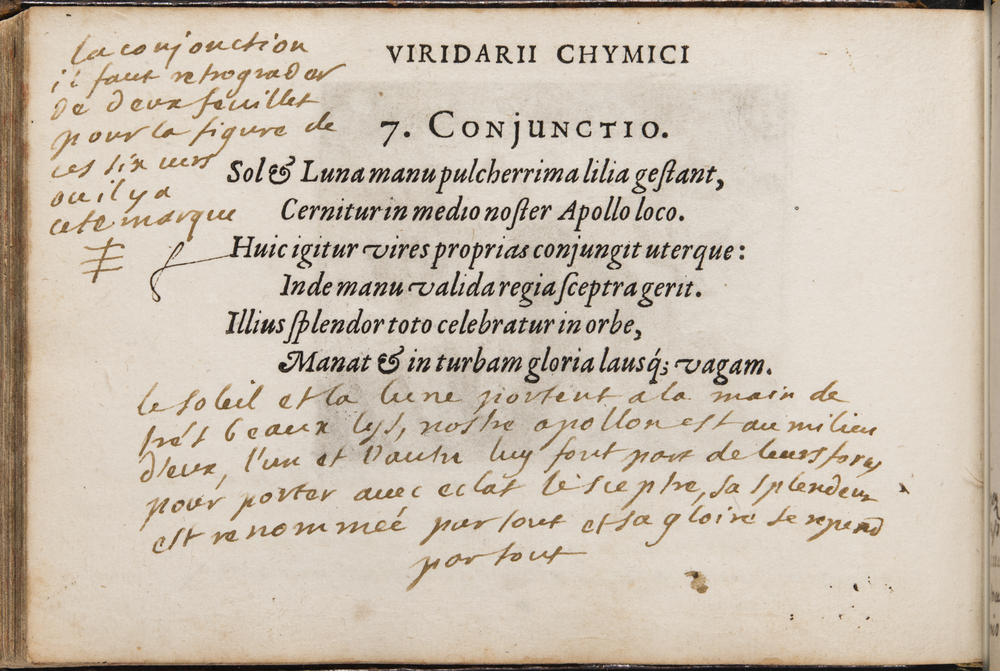 la conjonction
il faut retrograder
de deux feuillet
pour la figure de
ces six vers
ou il y a
cete marque
VIRIDARII CHYMICI
7. CONJUNCTIO.
Sol & Luna manu pulcherrima lilia geſtant,
Cernitur in medio noſter Apollo loco.
Huic igitur vires proprias conjungit uterque:
Inde manu valida regia ſceptra gerit.
Illius ſplendor toto celebratur in orbe,
Manat & in turbam gloria lausq́; vagam.
le soleil et la lune portent a la main de
trés beaux lys, nostre apollon est au milieu
d'eux, l'un et l'autre luy font part de leurs forces
pour porter avec eclat le sceptre, sa splendeur
est renommeé partout et sa gloire se repend
partout